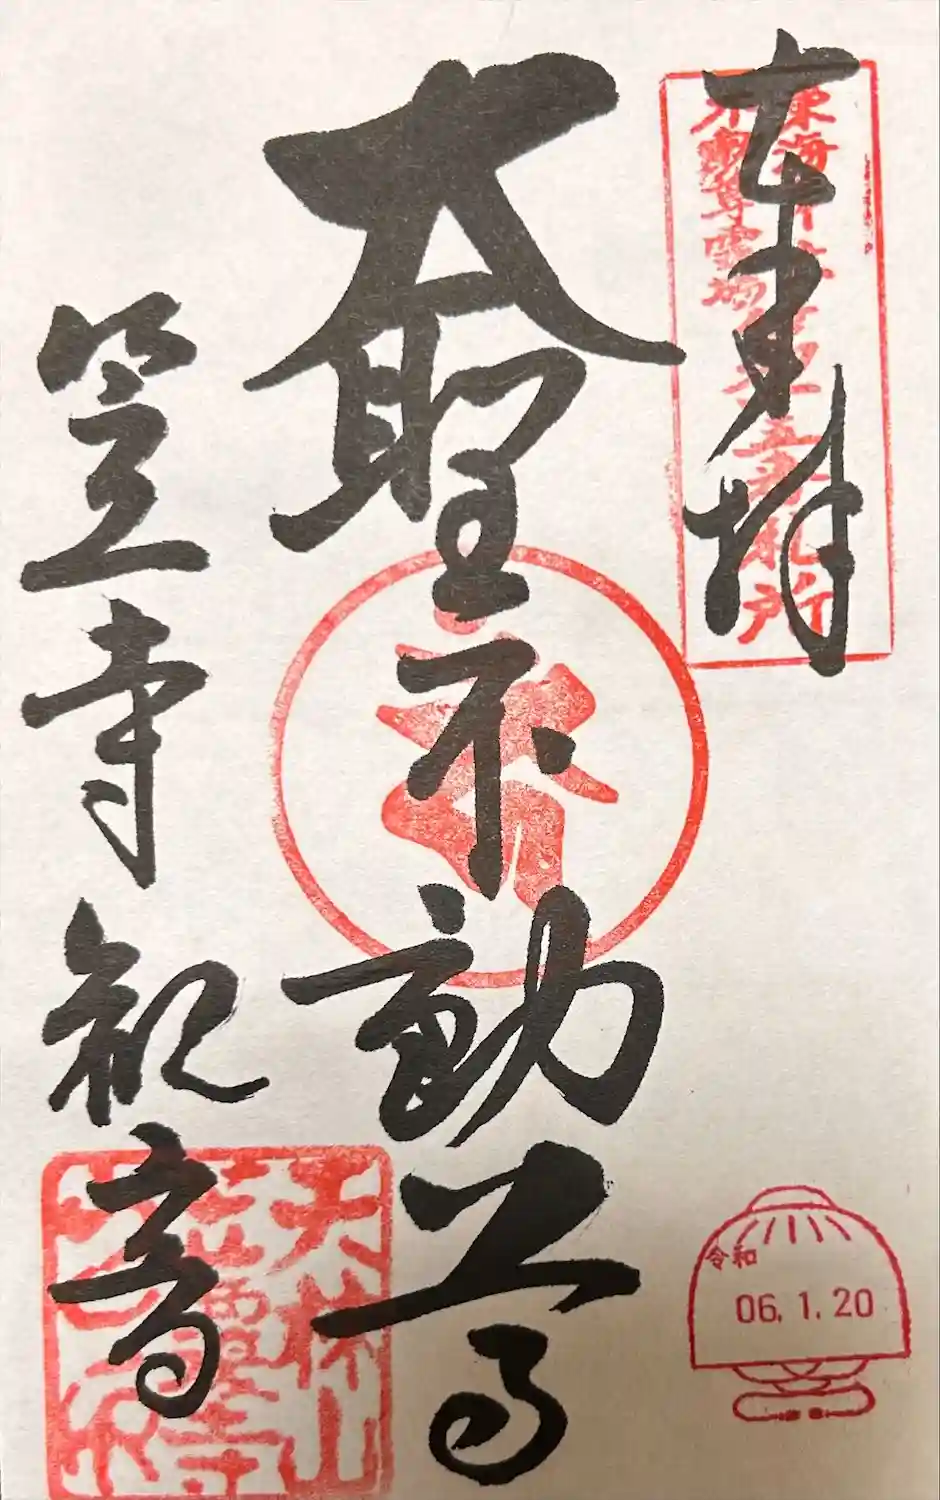 奉拝
東海三十六
不動尊霊場
第五番札所
大聖不動尊
笠寺観音
天林山
笠覆寺
令和
06.1.20